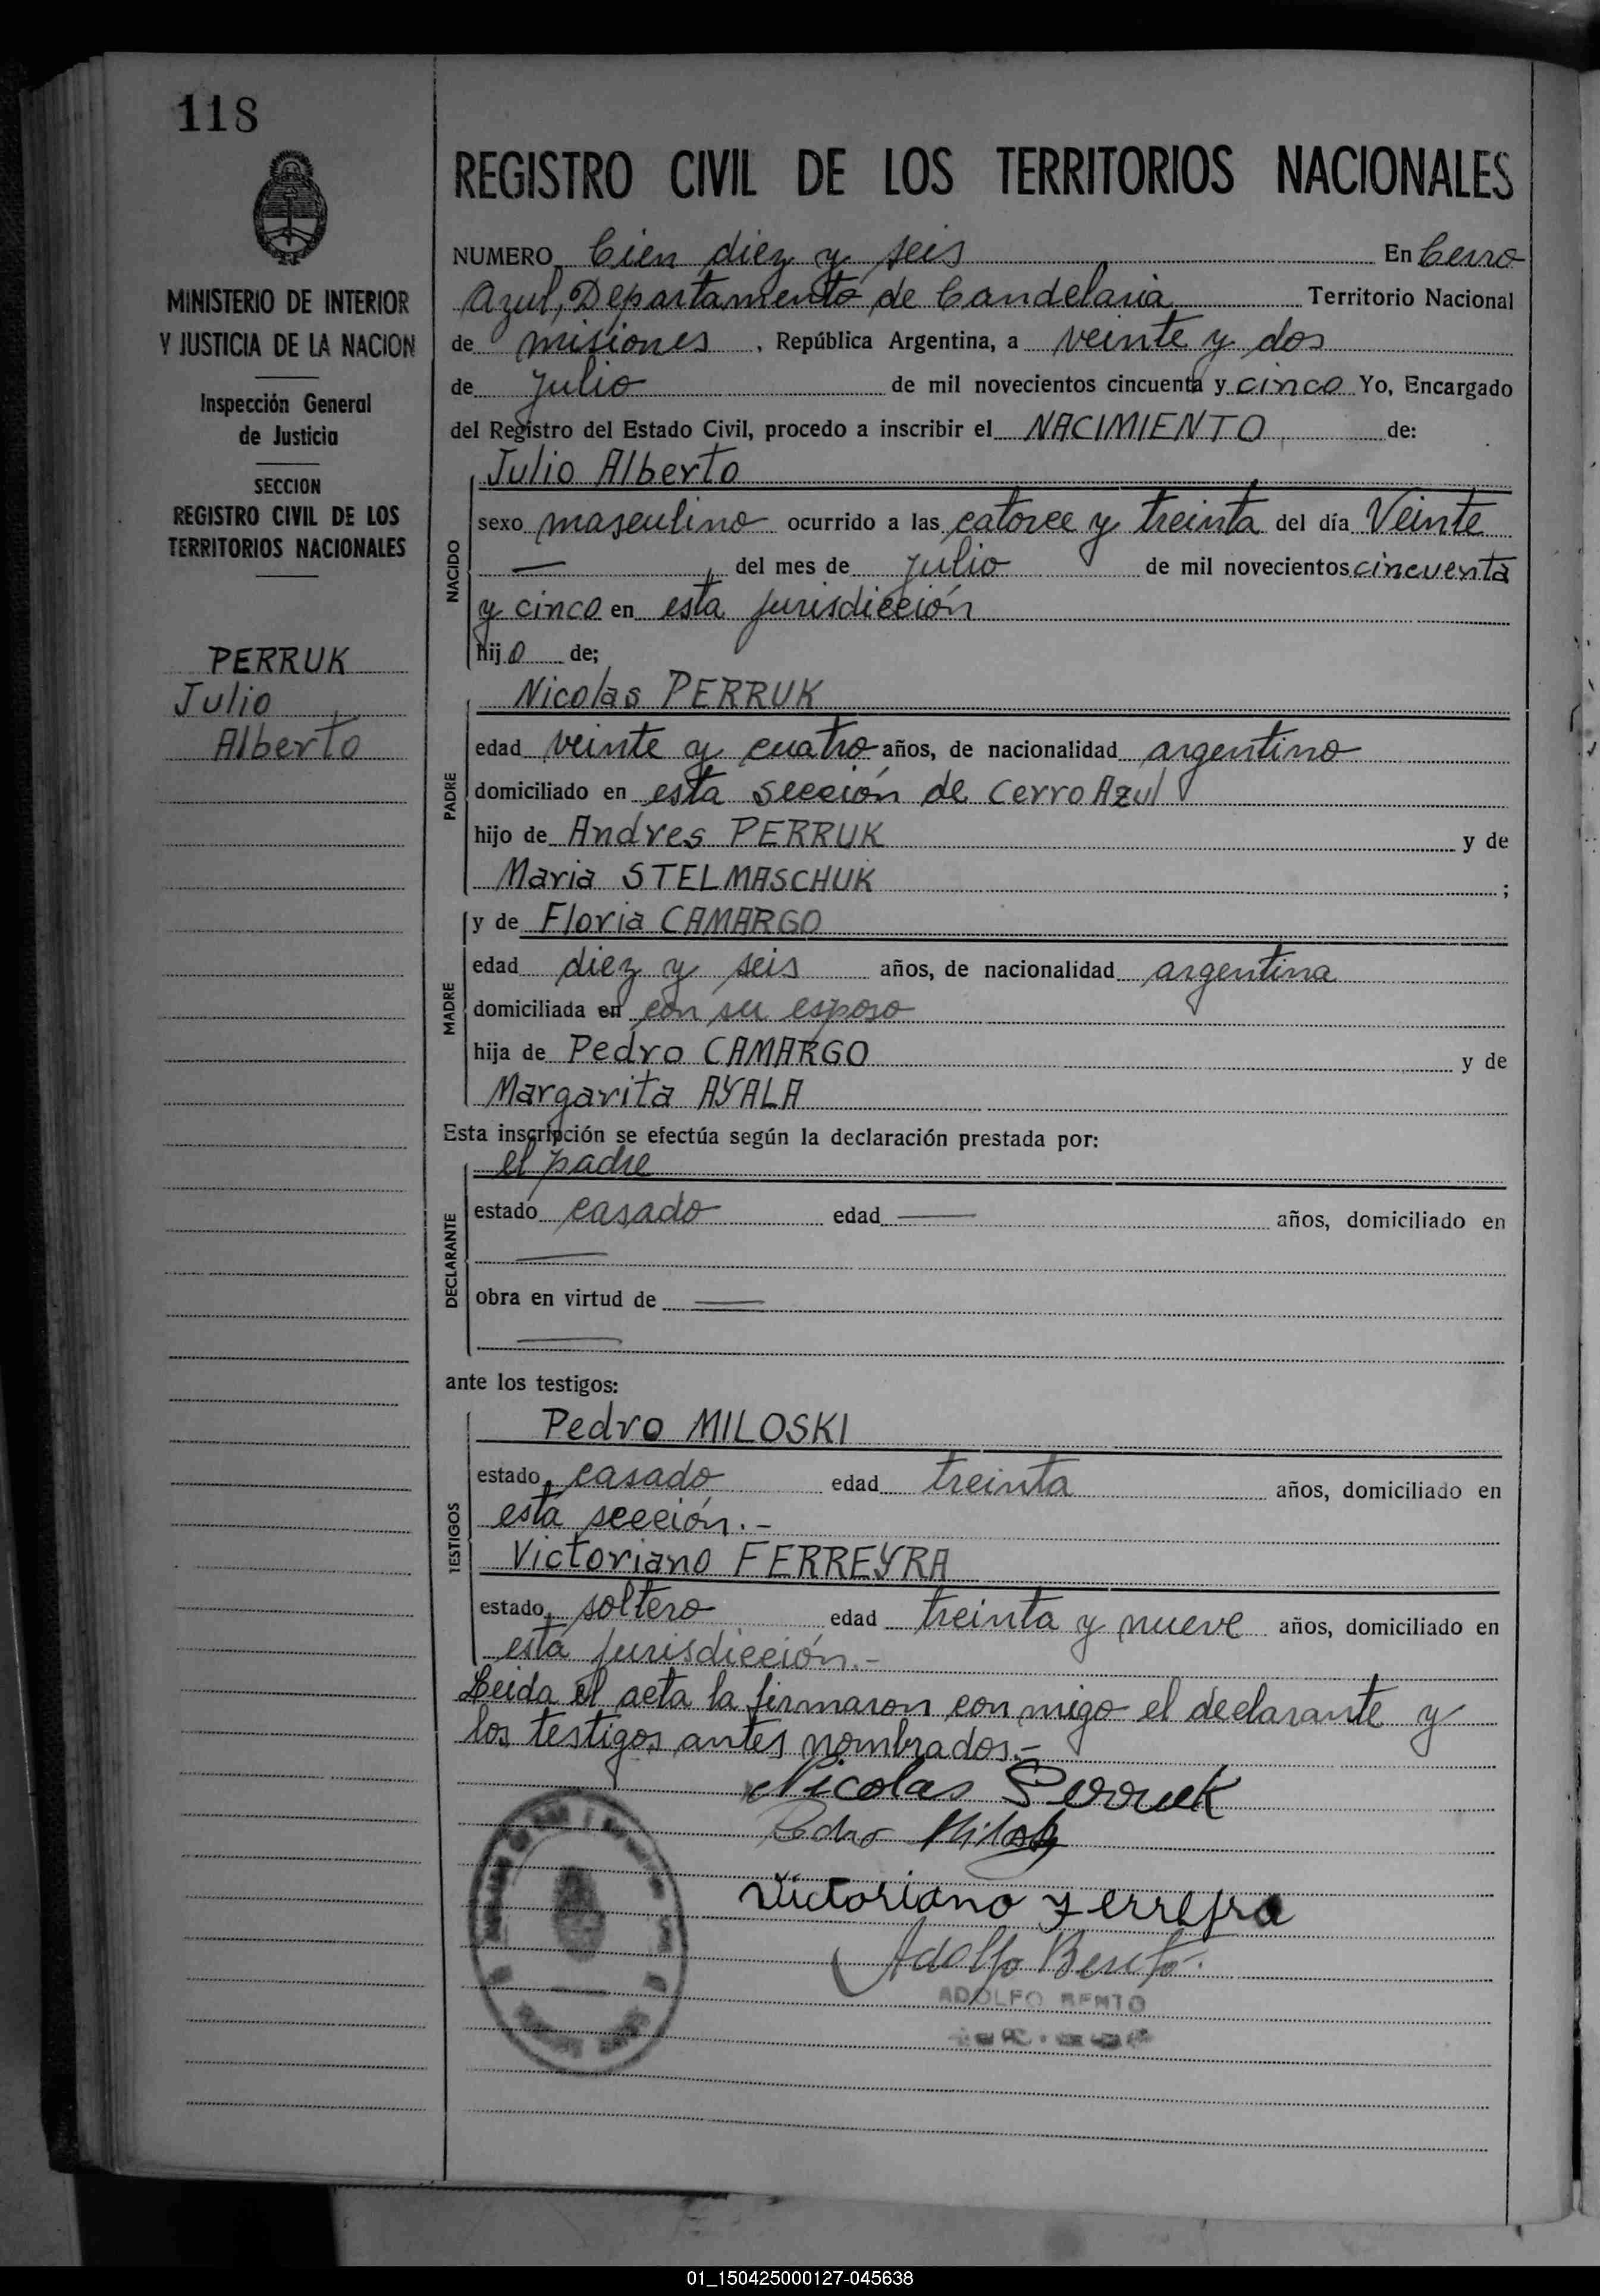 118
MINISTERIO DE INTERIOR
Y JUSTICIA DE LA NACION
Inspección General
de Justicia
SECCION
REGISTRO CIVIL DE LOS
TERRITORIOS NACIONALES
PERRUK
Julio
Alberto
REGISTRO CIVIL DE LOS TERRITORIOS NACIONALES
NUMERO Cien diez y seis En Cerro
Azul, Departamento de Candelaria Territorio Nacional
de misiones, República Argentina, a veinte y dos
de julio de mil novecientos cincuenta y cinco Yo, Encargado
del Registro del Estado Civil, procedo a inscribir el NACIMIENTO de:
Julio Alberto
NACIDO
sexo masculino ocurrido a las catorce y treinta del día Veinte
— del mes de julio de mil novecientos cincuenta
y cinco en esta jurisdicción
hijo de;
Nicolas PERRUK
PADRE
edad veinte y cuatro años, de nacionalidad argentino
domiciliado en esta sección de Cerro Azul
hijo de Andres PERRUK y de
Maria STELMASCHUK ;
y de Floria CAMARGO
MADRE
edad diez y seis años, de nacionalidad argentina
domiciliada en con su esposo
hija de Pedro CAMARGO y de
Margarita AYALA
Esta inscripción se efectúa según la declaración prestada por:
el padre
DECLARANTE
estado casado edad — años, domiciliado en
—
obra en virtud de —
—
ante los testigos:
Pedro MILOSKI
TESTIGOS
estado casado edad treinta años, domiciliado en
esta sección.-
Victoriano FERREYRA
estado soltero edad treinta y nueve años, domiciliado en
esta jurisdicción.-
Leida el acta la firmaron con migo el declarante y
los testigos antes nombrados.-
Nicolas Perruk
Pedro
Victoriano Ferreyra
Adolfo Bento.
ADOLFO BENTO
01_150425000127-045638